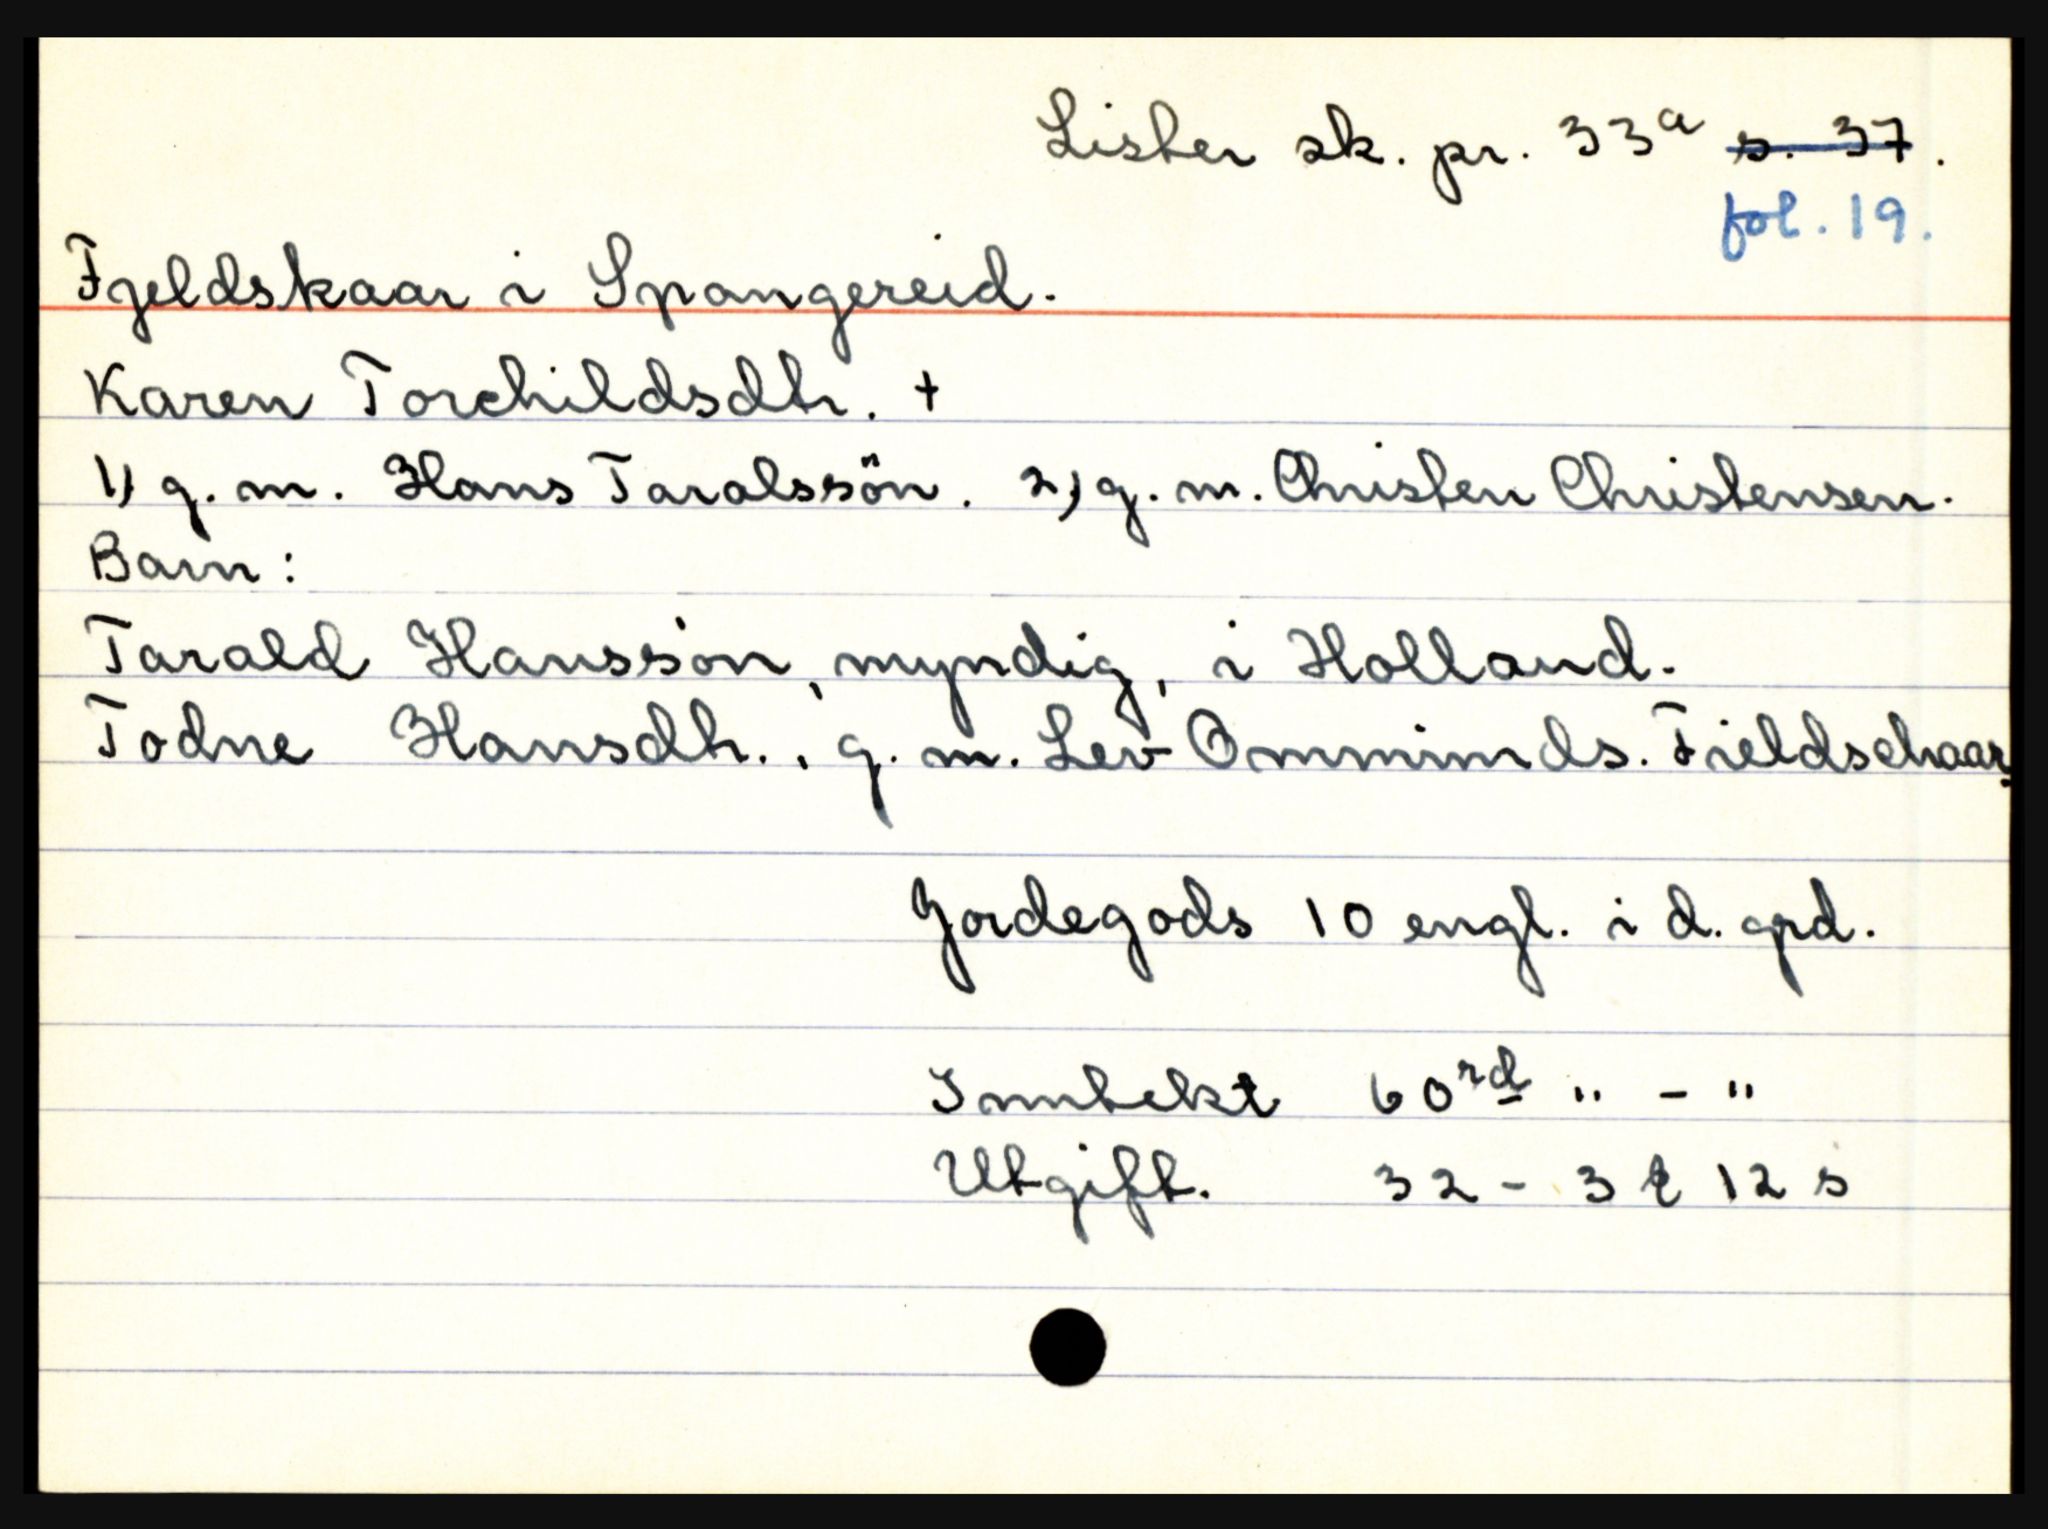 Lister sk. pr. 33a s. 37.
fol. 19.
Fjeldskaar i Spangereid.
Karen Torchildsdtr. +
1) g. m. Hans Taralssön. 2) g. m. Christen Christensen.
Barn:
Tarald Hanssön, myndig, i Holland.
Todne Hansdtr., g. m. Lev Ommunds. Fieldschaar.
Jordegods 10 engl. i d. grd.
Inntekt 60 rd " - "
Utgift. 32 - 3 t 12 s